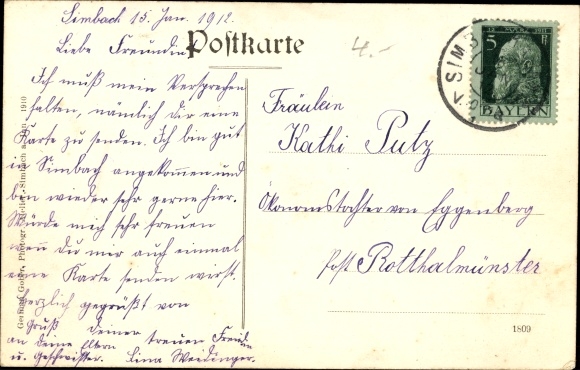 Simbach 15. Jan. 1912.
Liebe Freundin
Postkarte
4.-
Ich muß mein Versprechen
halten, nämlich dir eine
Karte zu senden. Ich bin gut
in Simbach angekommen und
bin wieder sehr gerne hier.
Würde mich sehr freuen
wenn du mir auch einmal
eine Karte senden wirst.
Herzlich gegrüßt von
Gruß deiner
an deine Eltern treuen Freundin
u. Geschwister. Lina Weidinger.
Fräulein
Kathi Putz
Ökonomstochter von Eggenberg
Post Rotthalmünster
5
BAYERN
SIMB
1809
Simbach a. Inn. 1910